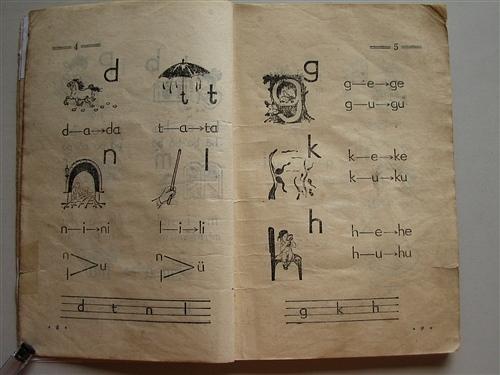 4
d
t t
d—a→da
t—a→ta
n
l
n—i→ni
l—i→li
n
l
u
n
l
ü
d t n l
5
g
g
g—e→ge
g—u→gu
k
k—e→ke
k—u→ku
h
h—e→he
h—u→hu
g k h